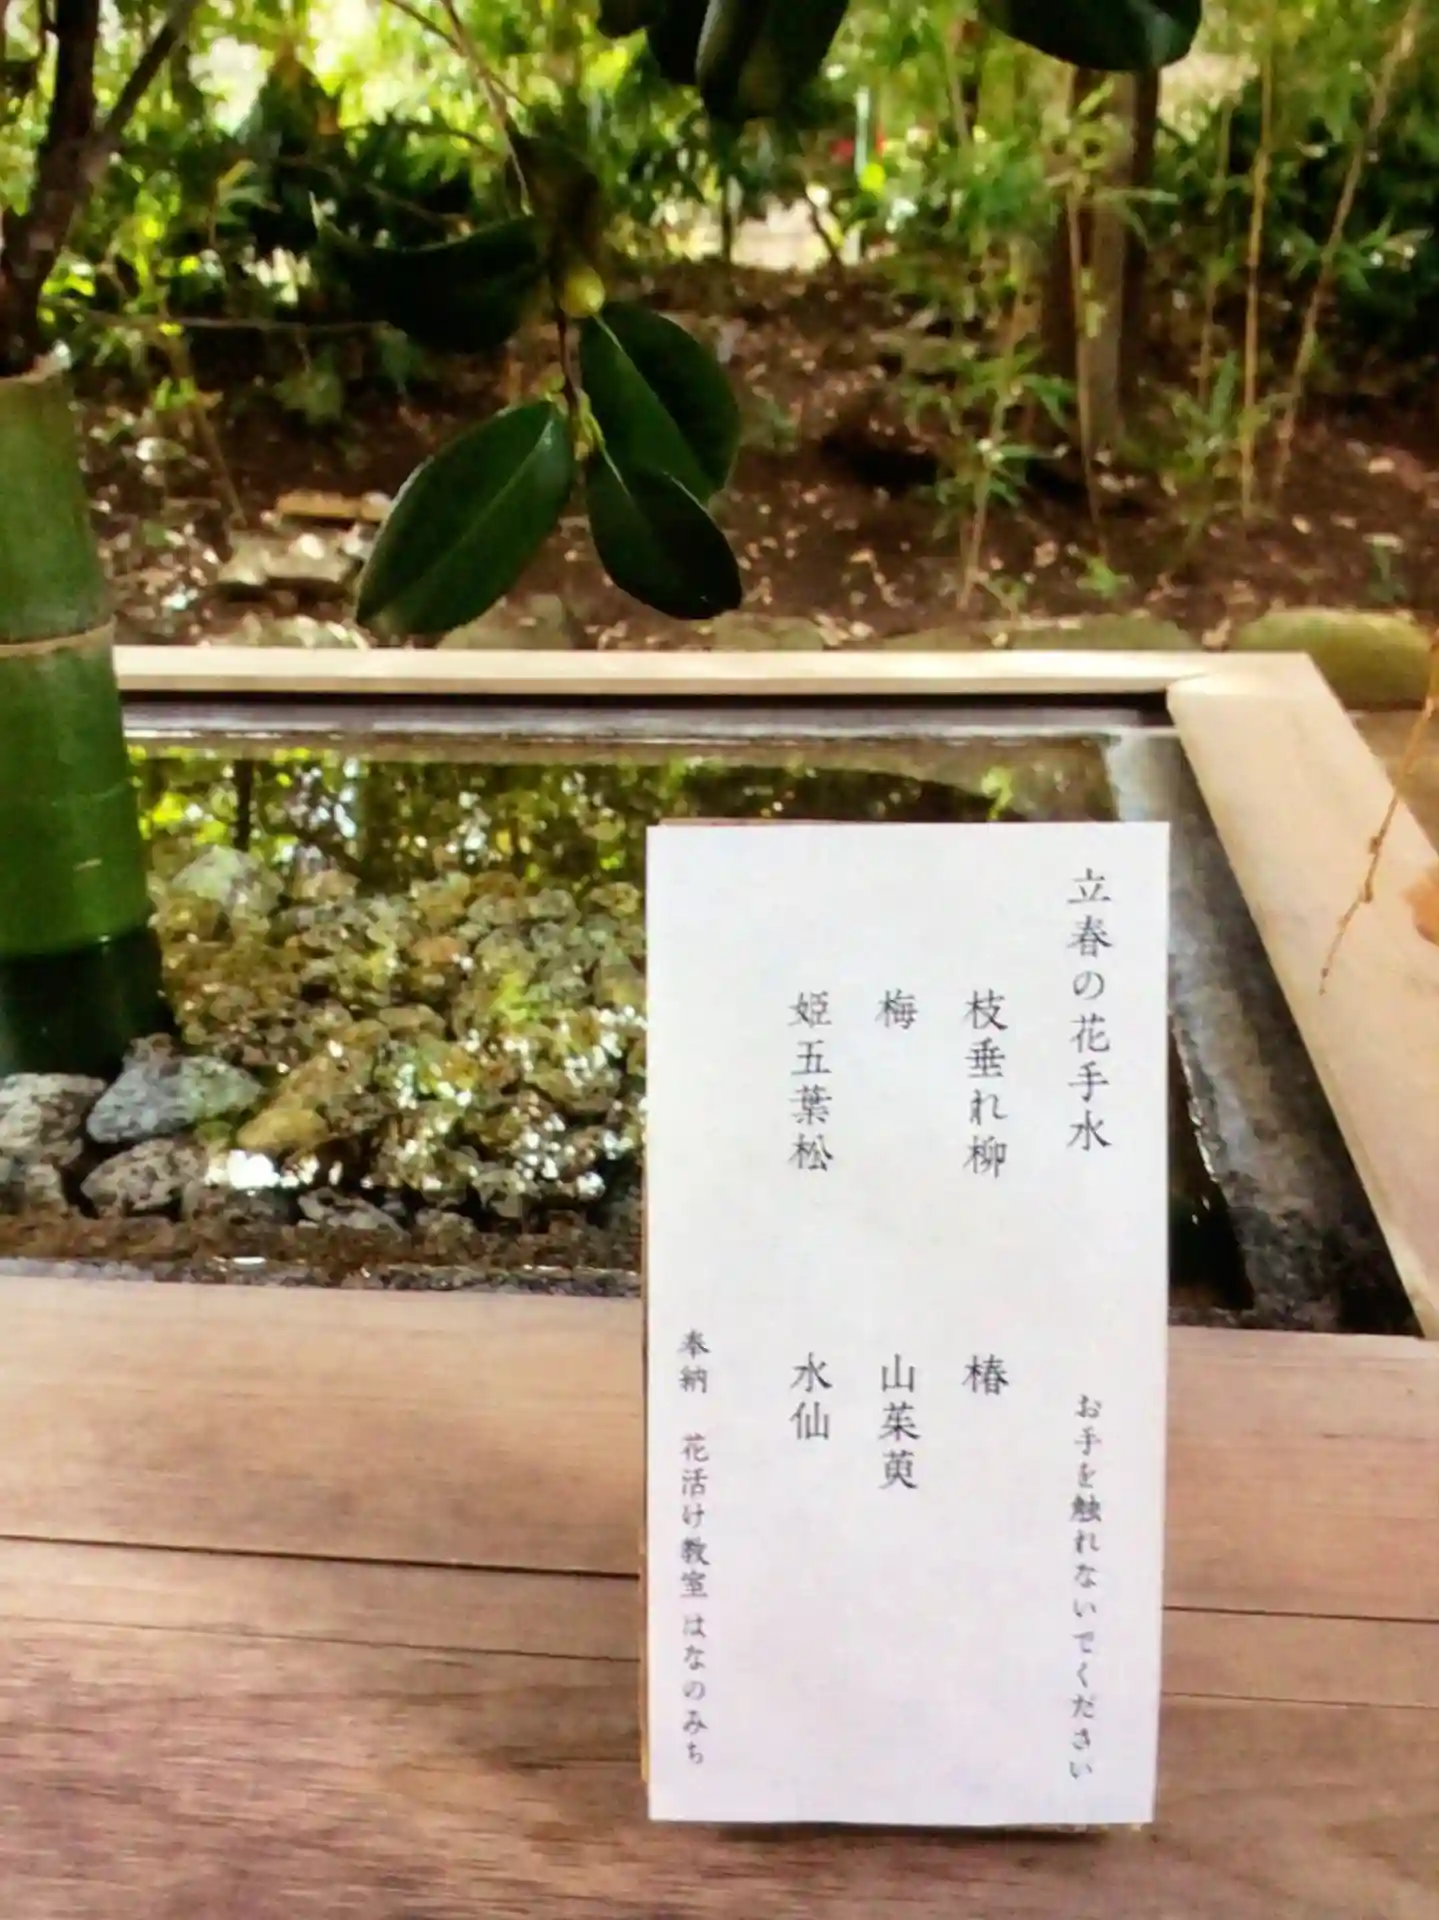 立春の花手水
お手を触れないでください
枝垂れ柳
椿
梅
山茱萸
姫五葉松
水仙
奉納 花活け教室 はなのみち